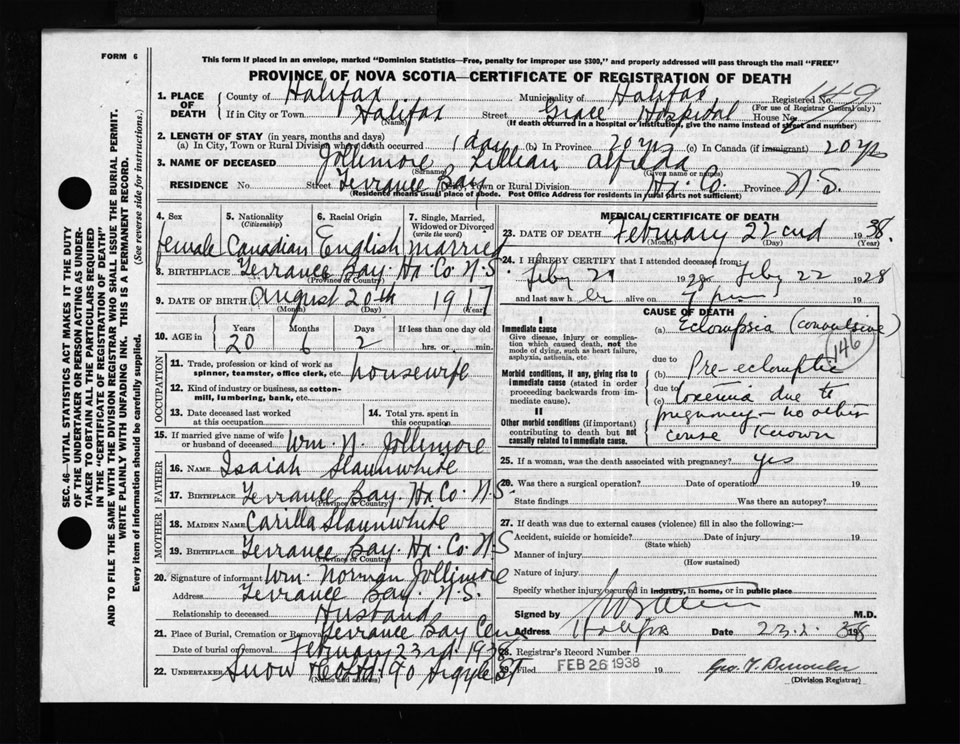 FORM 6
This form if placed in an envelope, marked "Dominion Statistics—Free, penalty for improper use $300," and properly addressed will pass through the mail "FREE"
PROVINCE OF NOVA SCOTIA—CERTIFICATE OF REGISTRATION OF DEATH
SEC. 46—VITAL STATISTICS ACT MAKES IT THE DUTY
OF THE UNDERTAKER OR PERSON ACTING AS UNDER-
TAKER TO OBTAIN ALL THE PARTICULARS REQUIRED
IN THE "CERTIFICATE OF REGISTRATION OF DEATH"
AND TO FILE THE SAME WITH THE DIVISION REGISTRAR WHO SHALL ISSUE THE BURIAL PERMIT.
WRITE PLAINLY WITH UNFADING INK. THIS IS A PERMANENT RECORD.
Every item of information should be carefully supplied. (See reverse side for instructions.)
1. PLACE OF DEATH County of Halifax Municipality of Halifax Registered No. 149
(For use of Registrar General only)
If in City or Town Halifax Street Grace Hospital House No.
(Name) (If death occurred in a hospital or institution, give the name instead of street and number)
2. LENGTH OF STAY (in years, months and days)
(a) In City, Town or Rural Division where death occurred 1 day (b) In Province 20 yrs (c) In Canada (if immigrant) 20 yrs
3. NAME OF DECEASED Jollimore Lillian Alfreda
(Surname) (Given name or names)
RESIDENCE No. Street Terrance Bay City, Town or Rural Division Hx. Co. Province N.S.
(Residence means usual place of abode. Post Office Address for residents in rural parts not sufficient)
4. Sex female
5. Nationality (Citizenship) Canadian
6. Racial Origin English
7. Single, Married, Widowed or Divorced (write the word) married
8. BIRTHPLACE Terrance Bay. Hx. Co. N.S.
(Province or Country)
9. DATE OF BIRTH August 20th 1917
(Month) (Day) (Year)
10. AGE in Years 20 Months 6 Days 2 If less than one day old hrs. or min.
OCCUPATION
11. Trade, profession or kind of work as spinner, teamster, office clerk, etc. housewife
12. Kind of industry or business, as cotton-mill, lumbering, bank, etc.
13. Date deceased last worked at this occupation
14. Total yrs. spent in this occupation
15. If married give name of wife or husband of deceased Wm. N. Jollimore
FATHER
16. NAME Isaiah Slaunwhite
17. BIRTHPLACE Terrance Bay. Hx. Co. N.S.
(Province or Country)
MOTHER
18. MAIDEN NAME Carilla Slaunwhite
19. BIRTHPLACE Terrance Bay. Hx. Co. N.S
(Province or Country)
20. Signature of informant Wm. Norman Jollimore
Address Terrance Bay. N.S.
Relationship to deceased Husband
21. Place of Burial, Cremation or Removal Terrance Bay Cem
Date of burial or removal February 23rd 1938
22. UNDERTAKER Snow & Co Ltd. 90 Argyle St
(Name and address)
MEDICAL CERTIFICATE OF DEATH
23. DATE OF DEATH February 22nd 1938.
(Month) (Day) (Year)
24. I HEREBY CERTIFY that I attended deceased from:
Feby 21 1928 Feby 22 1928
and last saw her alive on 7 pm 19
CAUSE OF DEATH
I
Immediate cause
Give disease, injury or complication which caused death, not the mode of dying, such as heart failure, asphyxia, asthenia, etc.
(a) Eclampsia (convulsive)
146
due to
Morbid conditions, if any, giving rise to immediate cause (stated in order proceeding backwards from immediate cause).
(b) Pre-eclamptic
due to
(c) toxemia due to
II
Other morbid conditions (if important) contributing to death but not causally related to immediate cause.
pregnancy - no other
cause known
25. If a woman, was the death associated with pregnancy? yes
26. Was there a surgical operation? Date of operation 19
State findings Was there an autopsy?
27. If death was due to external causes (violence) fill in also the following:—
Accident, suicide or homicide? Date of injury 19
(State which)
Manner of injury
(How sustained)
Nature of injury
Specify whether injury occurred in industry, in home, or in public place
Signed by M.D.
Address Halifax Date 23.2. 1938
28. Registrar's Record Number
29. Filed FEB 26 1938 19
(Division Registrar)